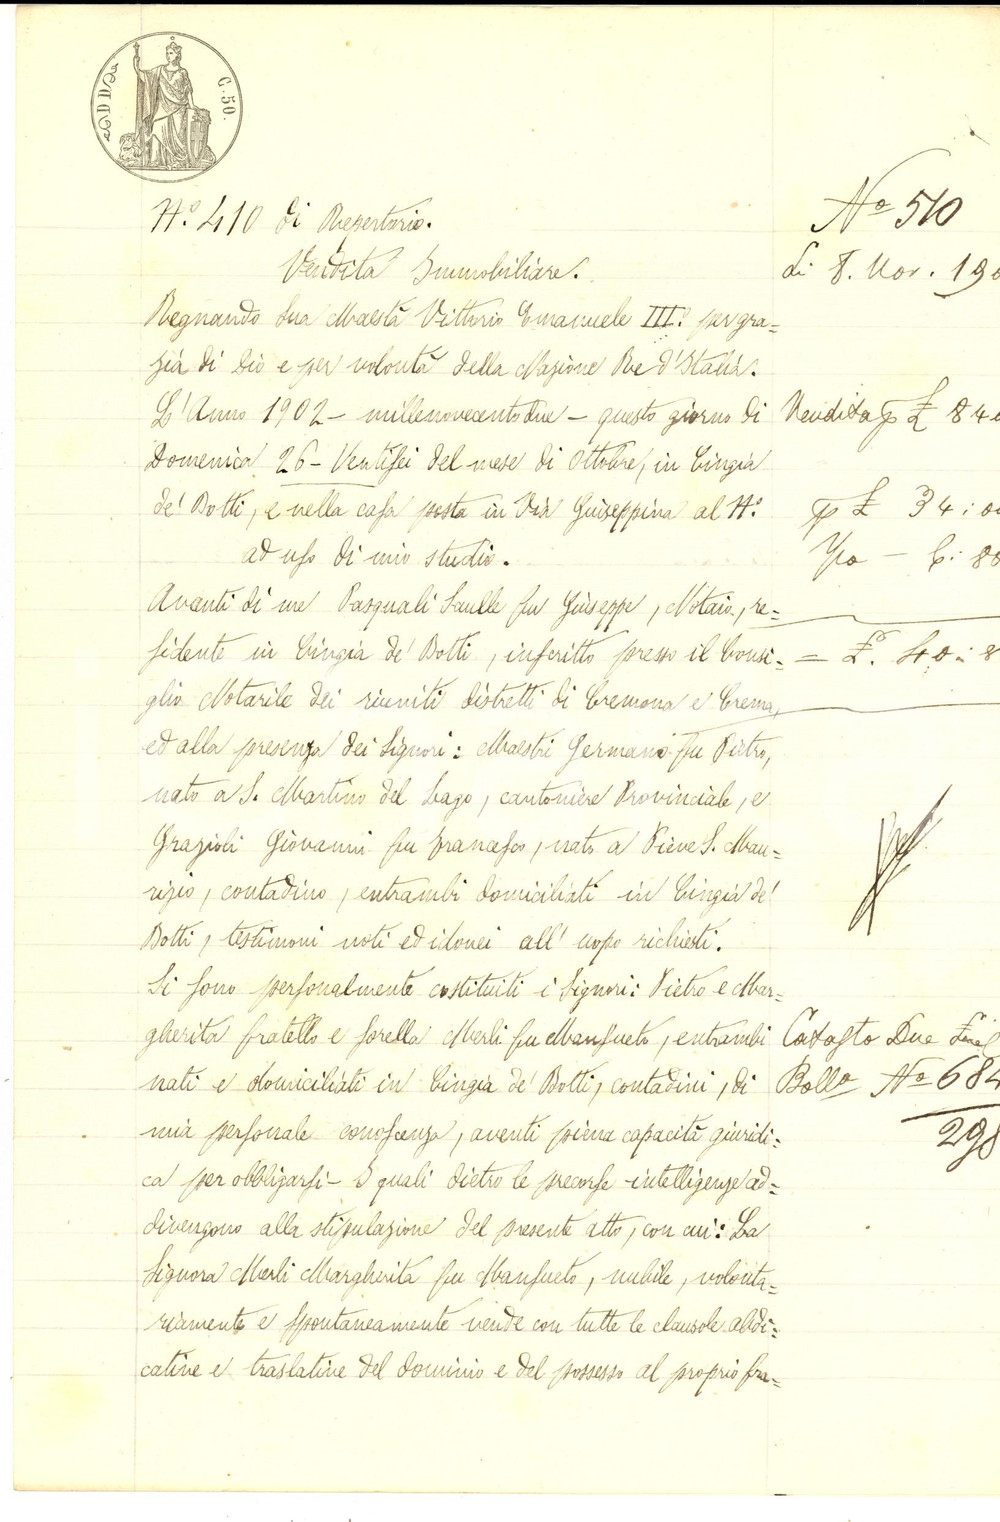 C. 50.
N.º 410 di Repertorio.
Vendita Immobiliare.
Regnando Sua Maestà Vittorio Emanuele III.º per gra=
zia di Dio e per volontà della Nazione Re d'Italia.
L'Anno 1902 - millenovecentodue - questo giorno di
Domenica 26 - Ventisei del mese di Ottobre, in Cingia
de' Botti, e nella casa posta in Via Giuseppina al N.º
ad uso di mio studio.
Avanti di me Pasquali Saulle fu Giuseppe, Notaio, re=
sidente in Cingia de' Botti, inscritto presso il Consi=
glio Notarile dei riuniti distretti di Cremona e Crema,
ed alla presenza dei Signori: Maestri Germano fu Pietro,
nato a S. Martino del Lago, cantoniere Provinciale, e
Grazioli Giovanni fu Francesco, nato a Pieve S. Mau=
rizio, contadino, entrambi domiciliati in Cingia de'
Botti, testimoni noti ed idonei all'uopo richiesti.
Si sono personalmente costituiti i Signori: Pietro e Mar=
gherita fratello e sorella Merli fu Mansueto, entrambi
nati e domiciliati in Cingia de' Botti, contadini, di
mia personale conoscenza, aventi piena capacità giuridi=
ca per obbligarsi - I quali dietro le precorse intelligenze ad=
divengono alla stipulazione del presente atto, con cui: La
Signora Merli Margherita fu Mansueto, nubile, volonta=
riamente e spontaneamente vende con tutte le clausole abdi=
cative e traslative del dominio e del possesso al proprio fra=
Nº 510
Li 8. Nov. 190
Vendita p £ 840
p £ 34:00
= £. 40:8
Catasto Due
Bollo Nº 684
298